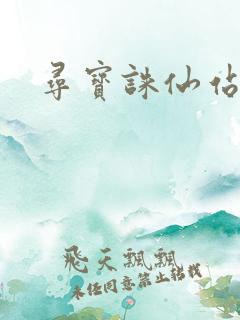 尋寶誅仙佔
飛天飄飄
未任同意禁止轉載